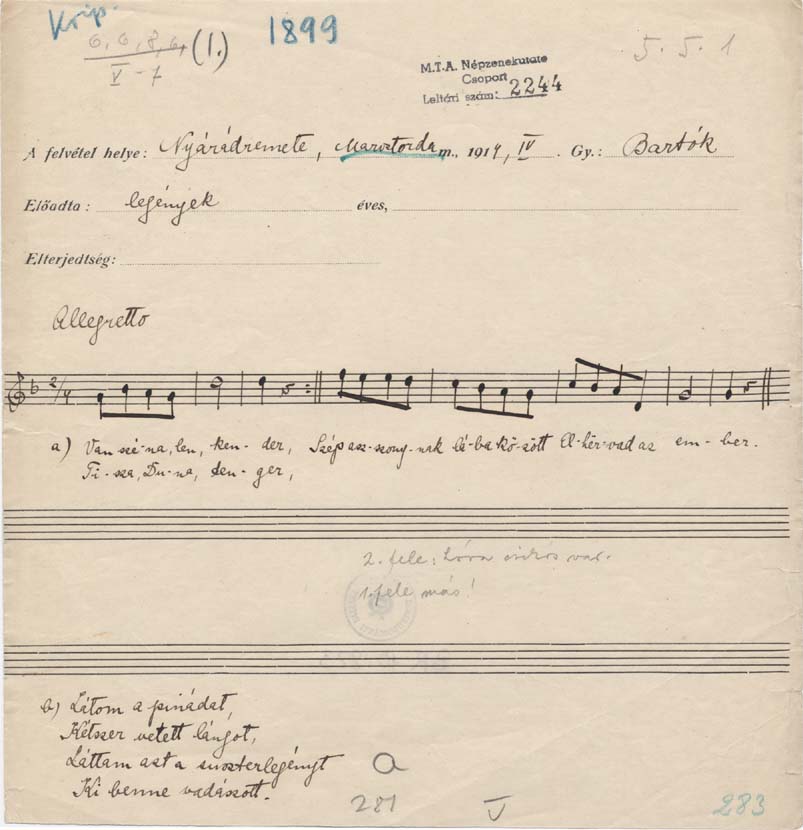 Krip.
6, 6, 8, 6, (1.)
V - 7
1899
5. 5. 1
M.T.A. Népzenekutató
Csoport
Leltári szám: 2244
A felvétel helye: Nyárádremete, Marostorda m., 1914, IV. Gy.: Bartók
Előadta: legények éves,
Elterjedtség:
Allegretto
2/4
a) Van szé-na, len, ken-der, Szép asz-szony-nak lá-ba kö-zött El-hër-vad az em-ber.
Ti-sza, Du-na, ten-ger,
2. fele: var.
1. fele más!
b) Látom a pinádat,
Kétszer vetett lángot,
Láttam azt a suszterlegényt
Ki benne vadászott.
a
281 V 283